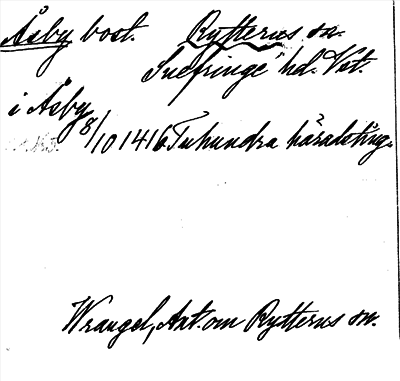 Åsby bost. Rytterns sn.
Snefringe hd. Vst.
i Åsby
8/10 1416 Tuhundra häradsting.
Wrangel, Ant. om Rytterns sn.